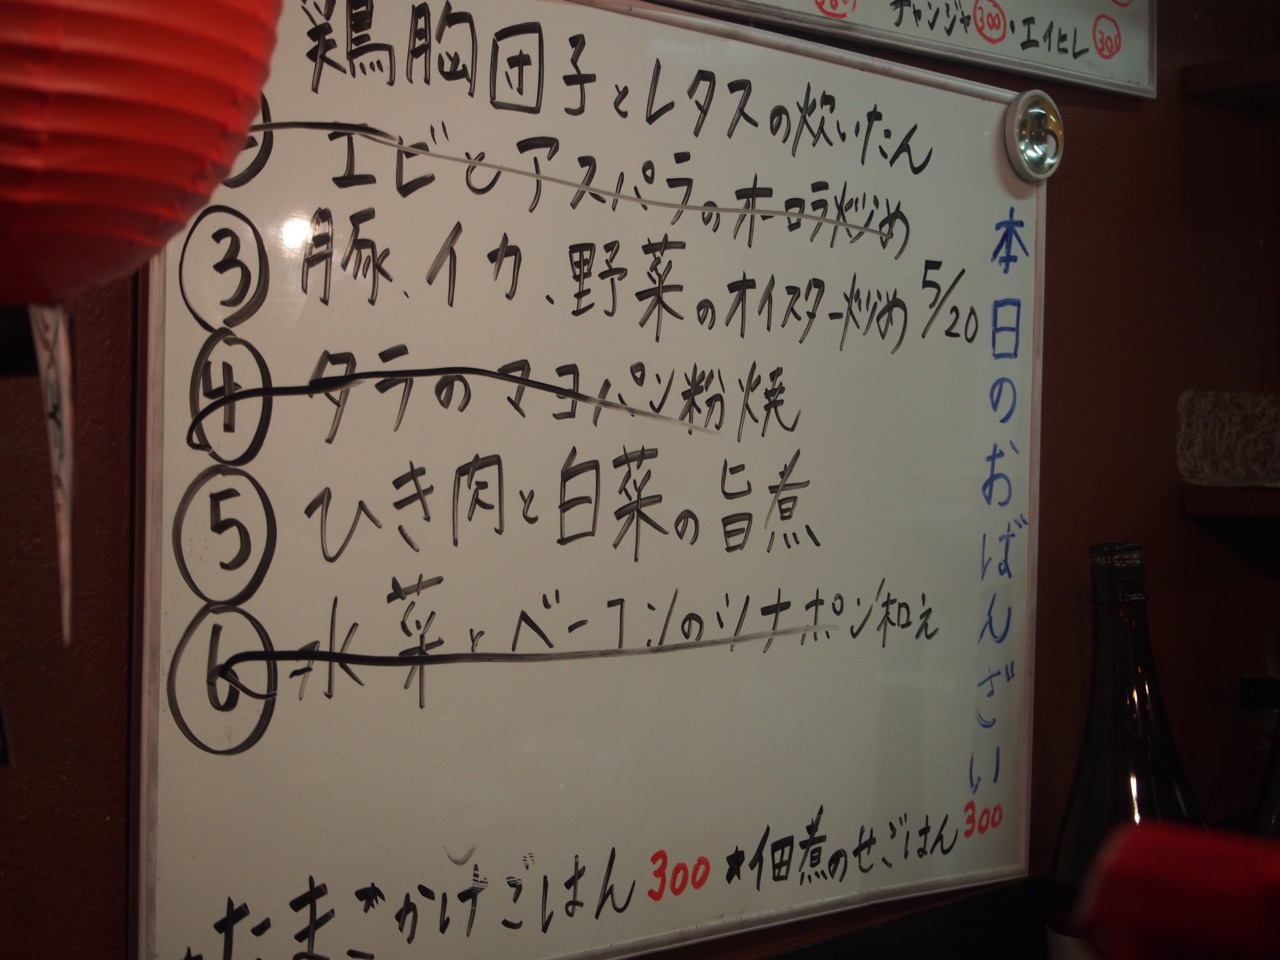 チャンジャ 300・エイヒレ 300
本日のおばんざい
鶏胸団子とレタスの炊いたん
エビとアスパラのオーロラ炒め
③ 豚、イカ、野菜のオイスター炒め 5/20
④ タラのマヨパン粉焼
⑤ ひき肉と白菜の旨煮
⑥ 水菜とベーコンのツナポン和え
たまごかけごはん 300 ★佃煮のせごはん 300